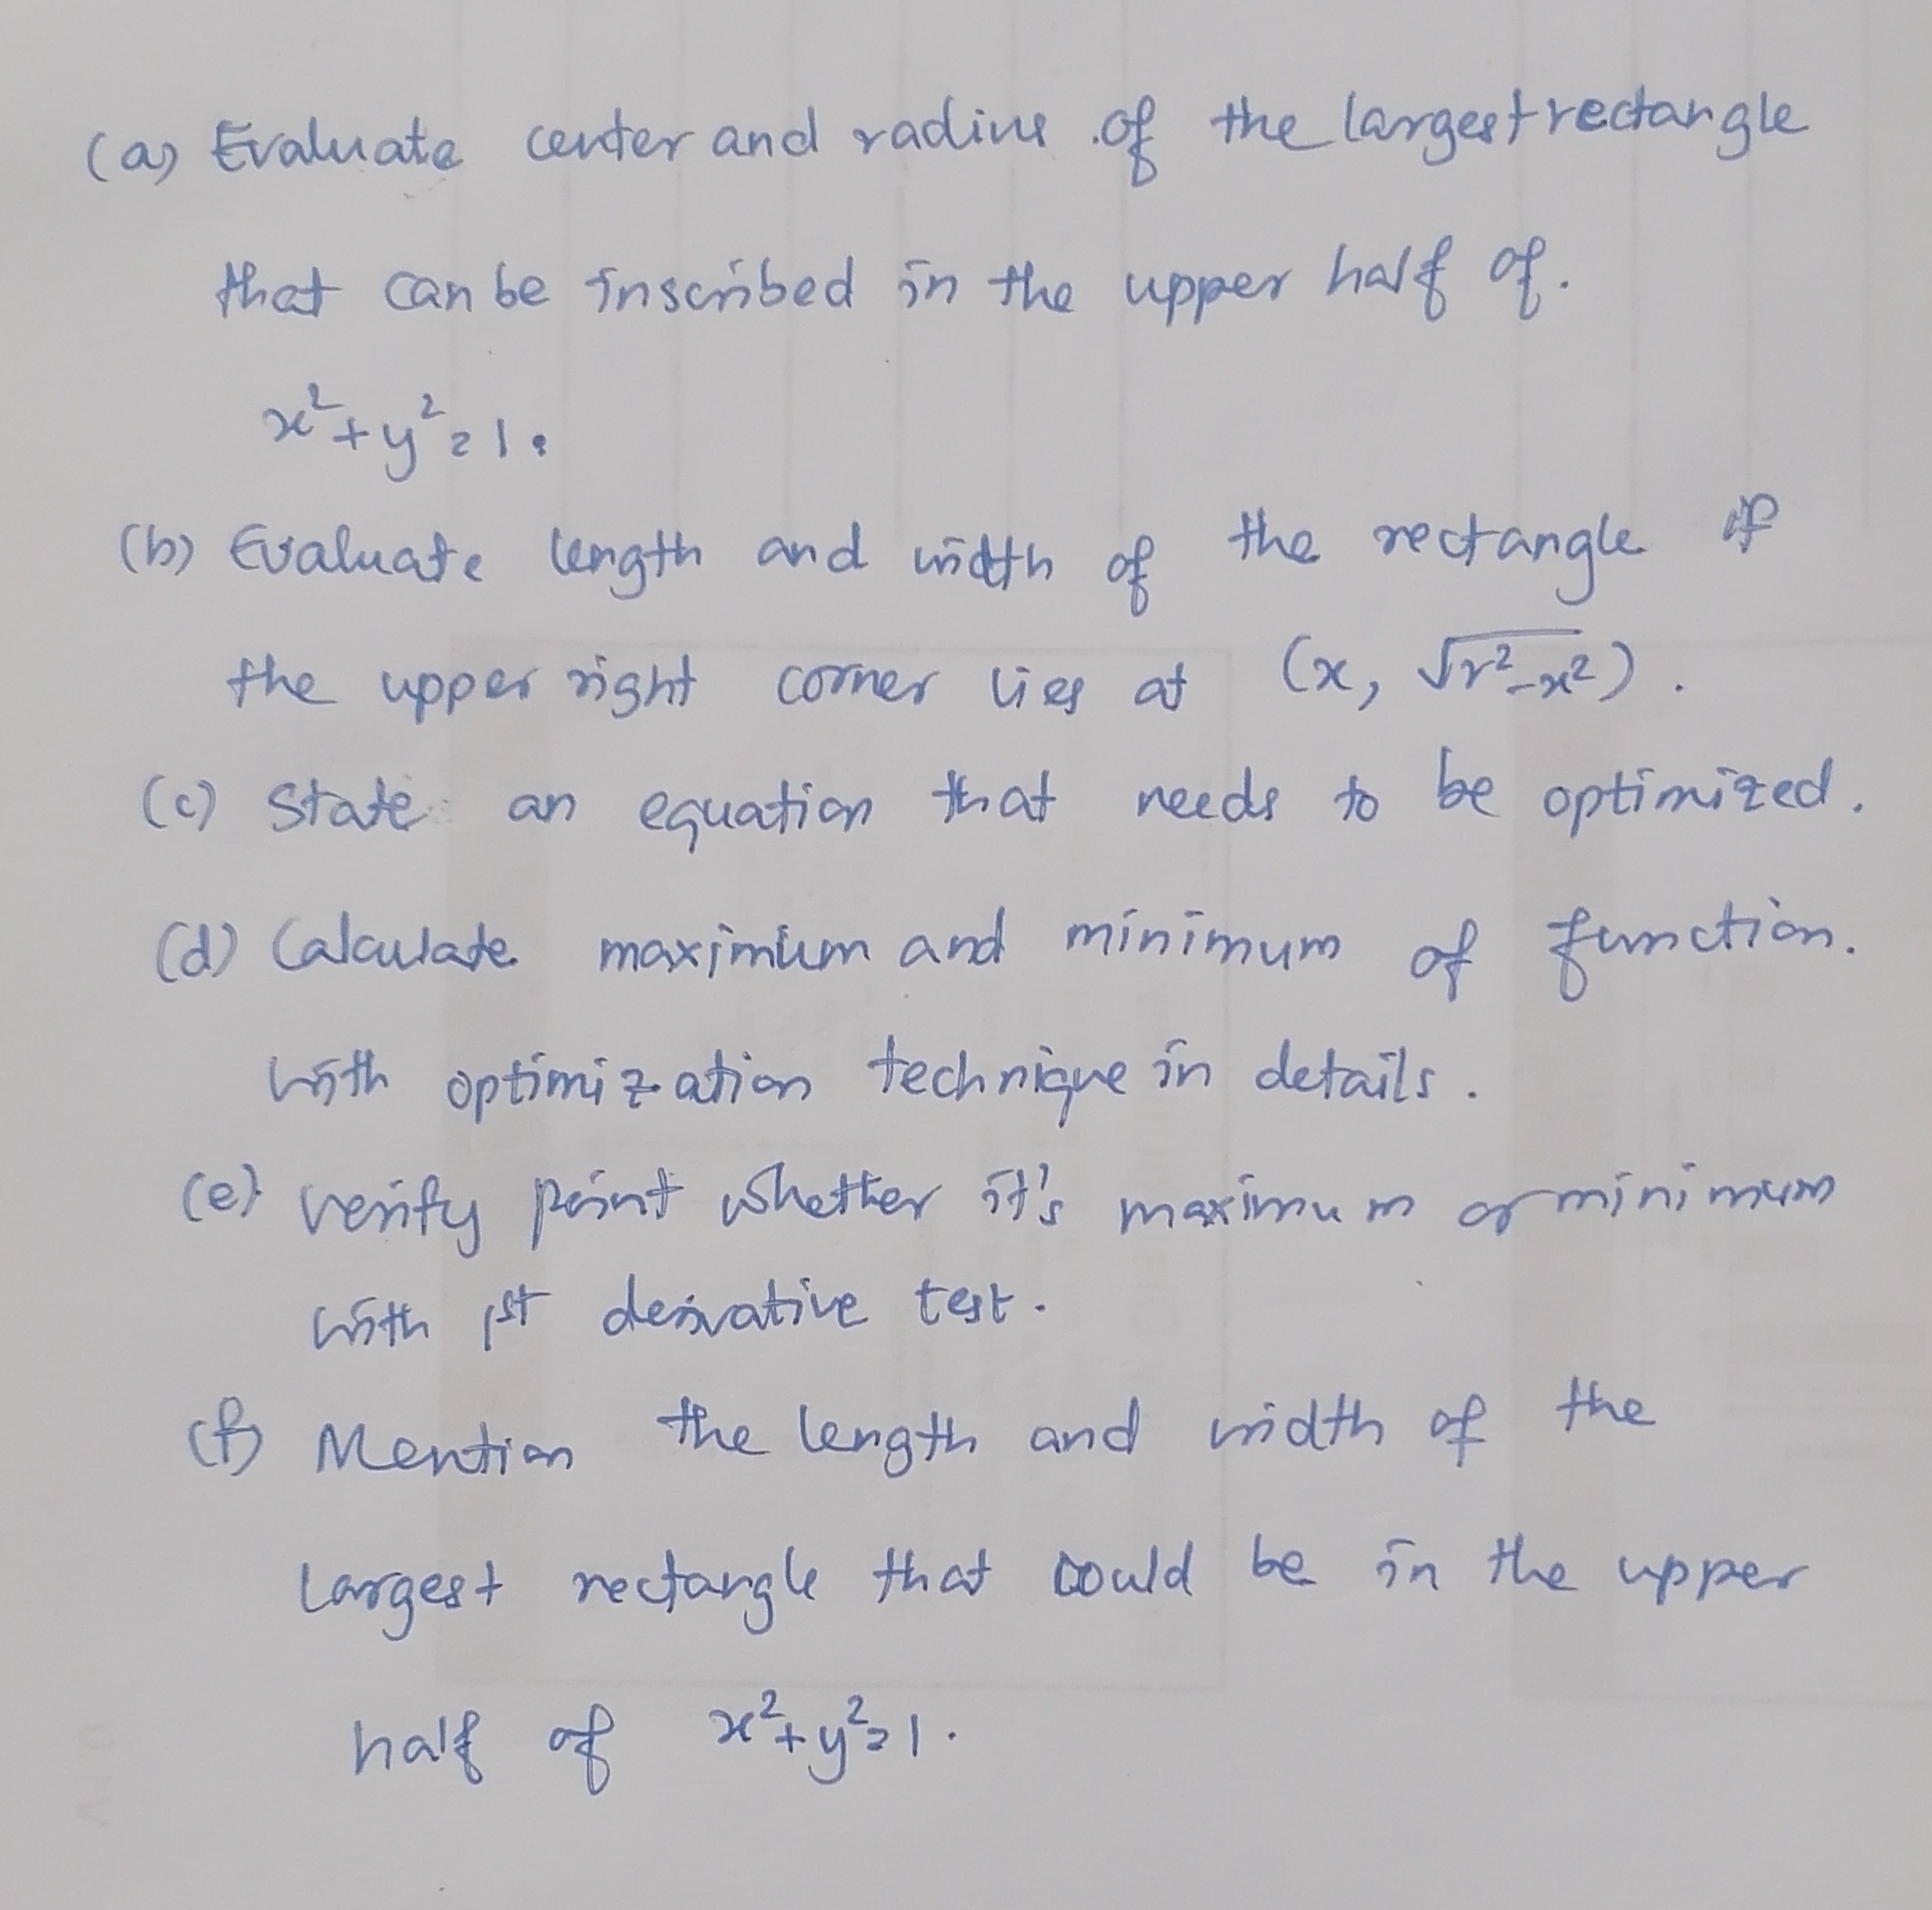 (a) Evaluate center and radius of the largest rectangle
that can be inscribed in the upper half of.
x²+y²=1.
(b) Evaluate length and width of the rectangle if
the upper right corner lies at (x, √r²-x²).
(c) State an equation that needs to be optimized.
(d) Calculate maximium and minimum of function.
with optimization technique in details.
(e) verify point whether it's maximum or minimum
with 1st derivative test.
(f) Mention the length and width of the
largest rectangle that could be in the upper
half of x²+y²=1.